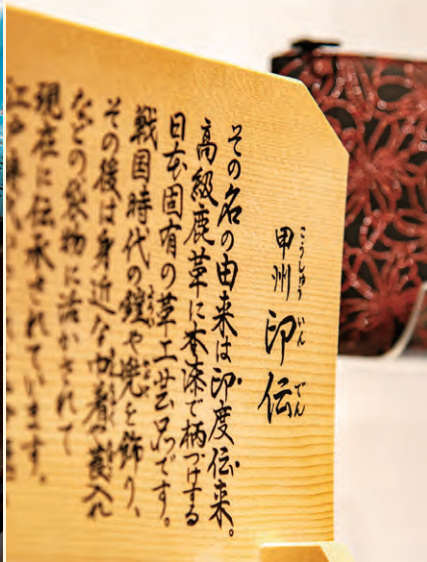 こうしゅう いんでん
甲州 印伝
その名の由来は印度伝来。
高級鹿革に本漆で柄づけする
日本固有の革工芸品です。
戦国時代の鎧や兜を飾り、
その後は身近な巾着や莨入れ
などの袋物に活かされて
現在に伝承されています。